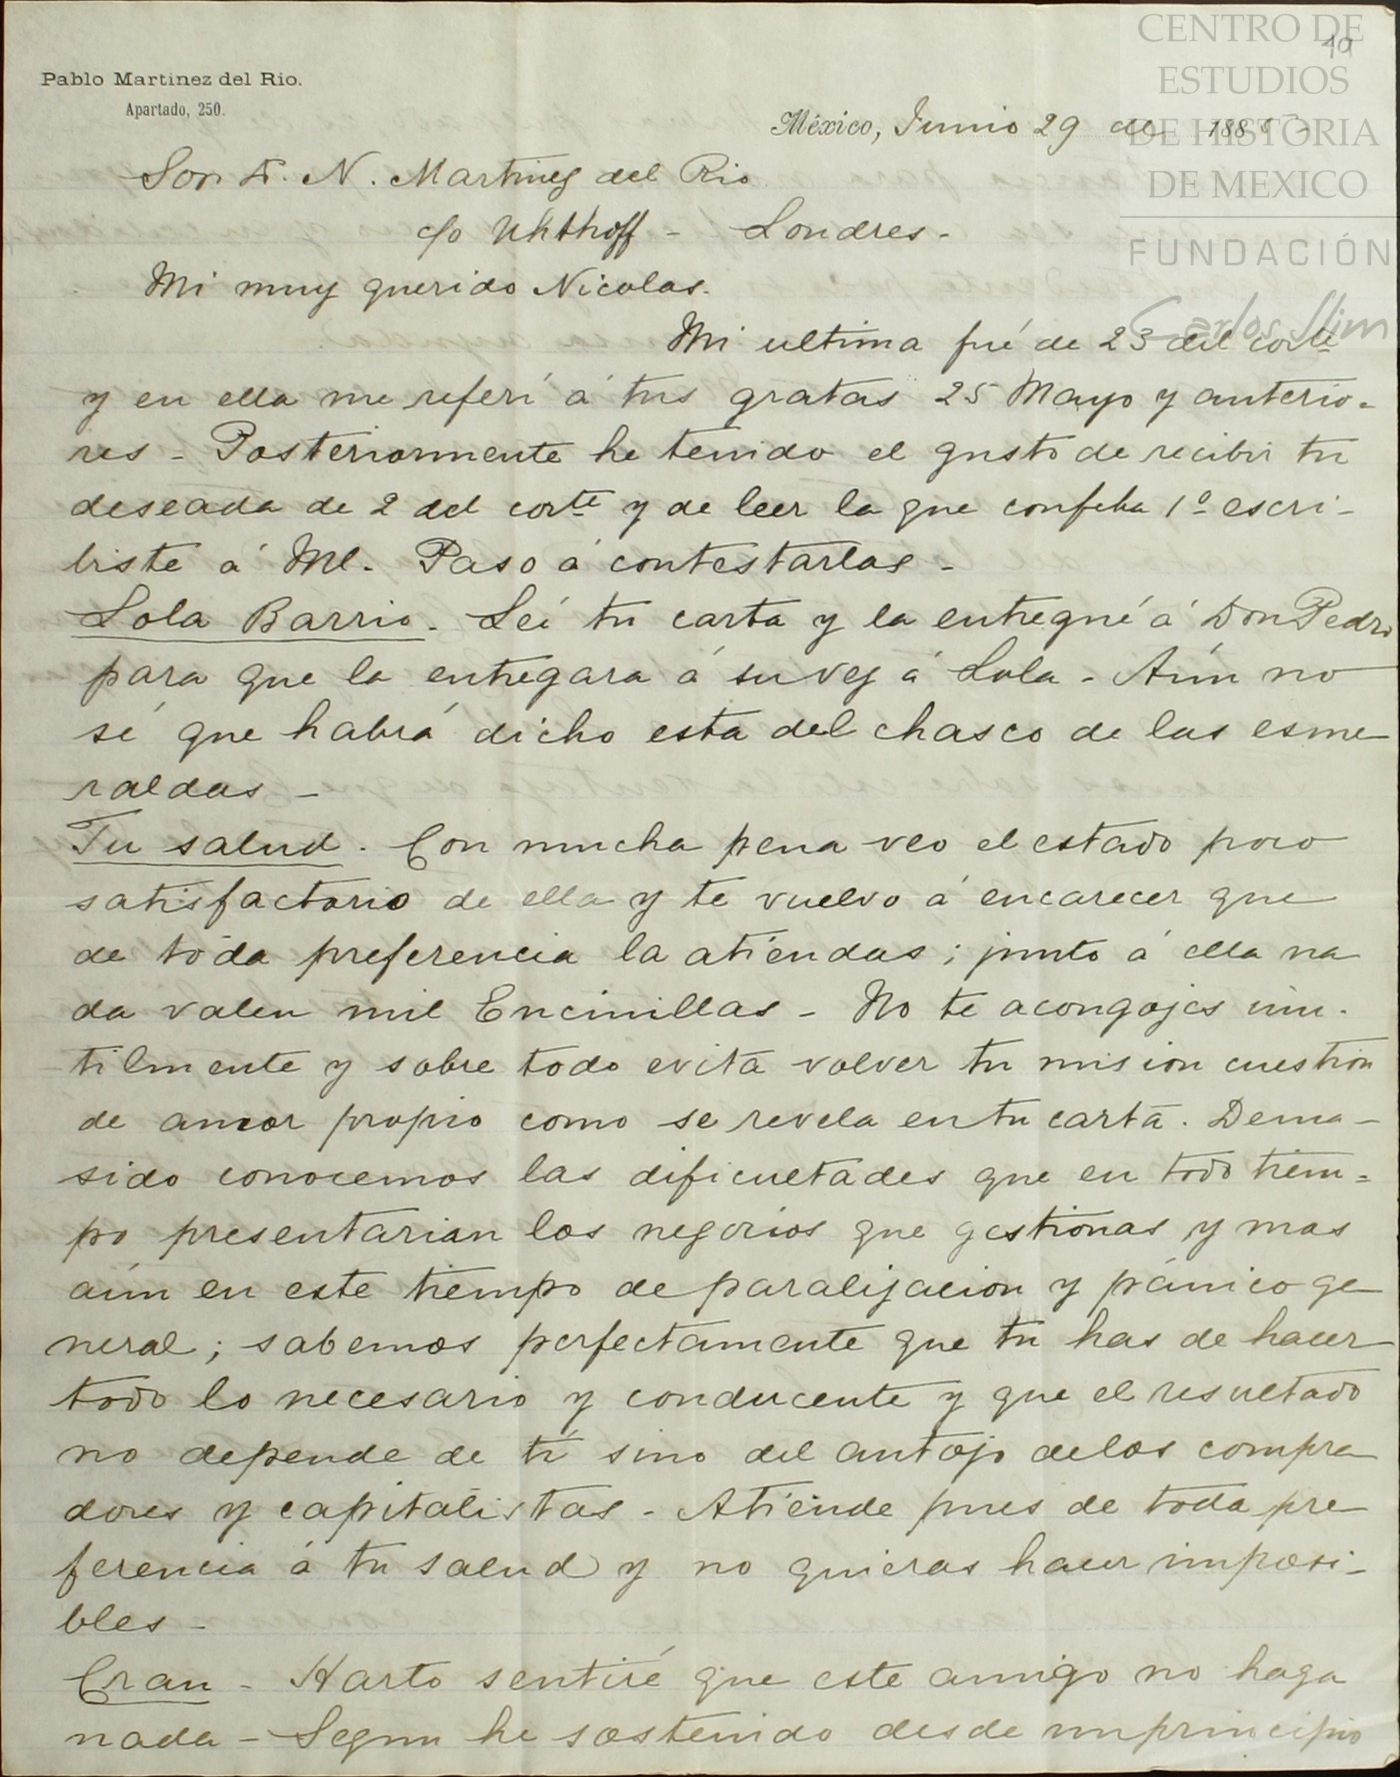 CENTRO DE
ESTUDIOS
DE HISTORIA
DE MEXICO
FUNDACIÓN
Carlos Slim
19
Pablo Martinez del Rio.
Apartado, 250.
México, Junio 29 de 188
Sor. D. N. Martinez del Rio
c/o Uhthoff - Londres -
Mi muy querido Nicolas.
Mi ultima fué de 23 del corte
y en ella me referí á tus gratas 25 Mayo y anterio-
res - Posteriormente he tenido el gusto de recibir tu
deseada de 2 del corte y de leer la que con fcha 1º escri-
biste á Ml. Paso á contestarlas -
Lola Barrio. Leí tu carta y la entregué á Don Pedro
para que la entregara á su vez á Lola - Aún no
sé que habrá dicho esta del chasco de las esme
raldas -
Tu salud. Con mucha pena veo el estado poco
satisfactorio de ella y te vuelvo á encarecer que
de toda preferencia la atiendas; junto á ella na
da valen mil Encinillas - No te acongojes inu-
tilmente y sobre todo evita volver tu mision cuestion
de amor propio como se revela en tu carta. Dema-
sido conocemos las dificultades que en todo tiem-
po presentarian los negocios que gestionas y mas
aún en este tiempo de paralizacion y pánico ge
neral; sabemos perfectamente que tu has de hacer
todo lo necesario y conducente y que el resultado
no depende de tí sino del antojo de los compra
dores y capitalistas - Atiende pues de toda pre-
ferencia á tu salud y no quieras hacer imposi-
bles -
Cran - Harto sentiré que este amigo no haga
nada - Segun he sostenido desde un principio